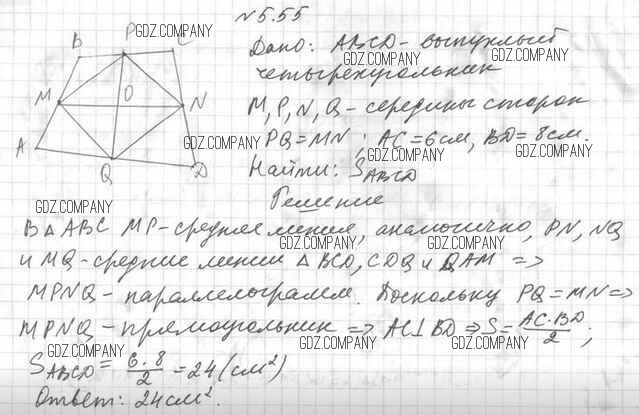 №5.55
B P C
Дано: ABCD - выпуклый
четырехугольник
M O N
M, P, N, Q - середины сторон
PQ = MN; AC = 6 см, BD = 8 см.
A Q D
Найти: S ABCD
Решение
В △ ABC MP - средняя линия, аналогично, PN, NQ
и MQ - средние линии △ BCD, CDQ и QAM =>
MPNQ - параллелограмм. Поскольку PQ = MN =>
MPNQ - прямоугольник => AC ⊥ BD => S = AC·BD / 2 ;
S ABCD = 6·8 / 2 = 24 (см²)
Ответ: 24 см².
GDZ.COMPANY
GDZ.COMPANY
GDZ.COMPANY
GDZ.COMPANY
GDZ.COMPANY
GDZ.COMPANY
GDZ.COMPANY
GDZ.COMPANY
GDZ.COMPANY
GDZ.COMPANY
GDZ.COMPANY
GDZ.COMPANY
GDZ.COMPANY
GDZ.COMPANY